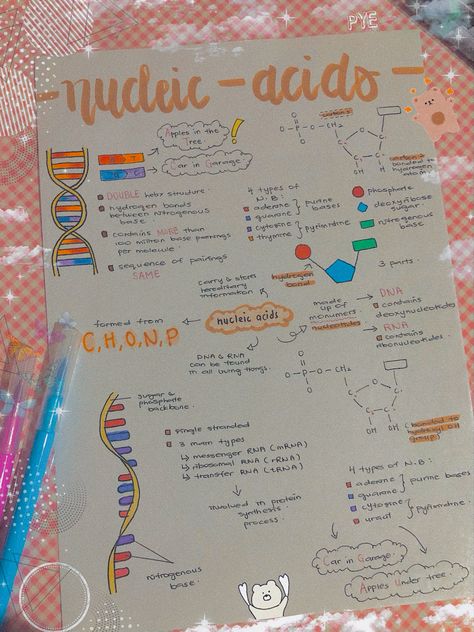 PYE
nucleic - acids
Apples in the
Tree
!
Car in Garage
DOUBLE helix structure
hydrogen bonds
between nitrogenous
base
contains MORE than
100 million base pairings
per molecule
sequence of pairings
SAME
O P O CH₂
carbon 2
bonded to
hydrogen
atom
4 types of
N.B:
adenine
guanine
purine
bases
cytosine
thymine
pyrimidine
phosphate
deoxyribose
sugar
nitrogenous
base
hydrogen
bond
3 parts
carry & stores
hereditary
information
nucleic acids
made
up of
monumers
nucleotides
DNA
contains
deoxynucleotides
RNA
contains
ribonucleotides
formed from
C, H, O, N, P
DNA & RNA
can be found
in all living things
O P O CH₂
OH OH
bonded to
hydroxyl OH
group
sugar &
phosphate
backbone
single stranded
3 main types
messenger RNA (mRNA)
ribosomal RNA (rRNA)
transfer RNA (tRNA)
involved in protein
synthesis
process
nitrogenous
base
4 types of N.B:
adenine
guanine
purine bases
cytosine
uracil
pyrimidine
Car in Garage
Apples Under tree